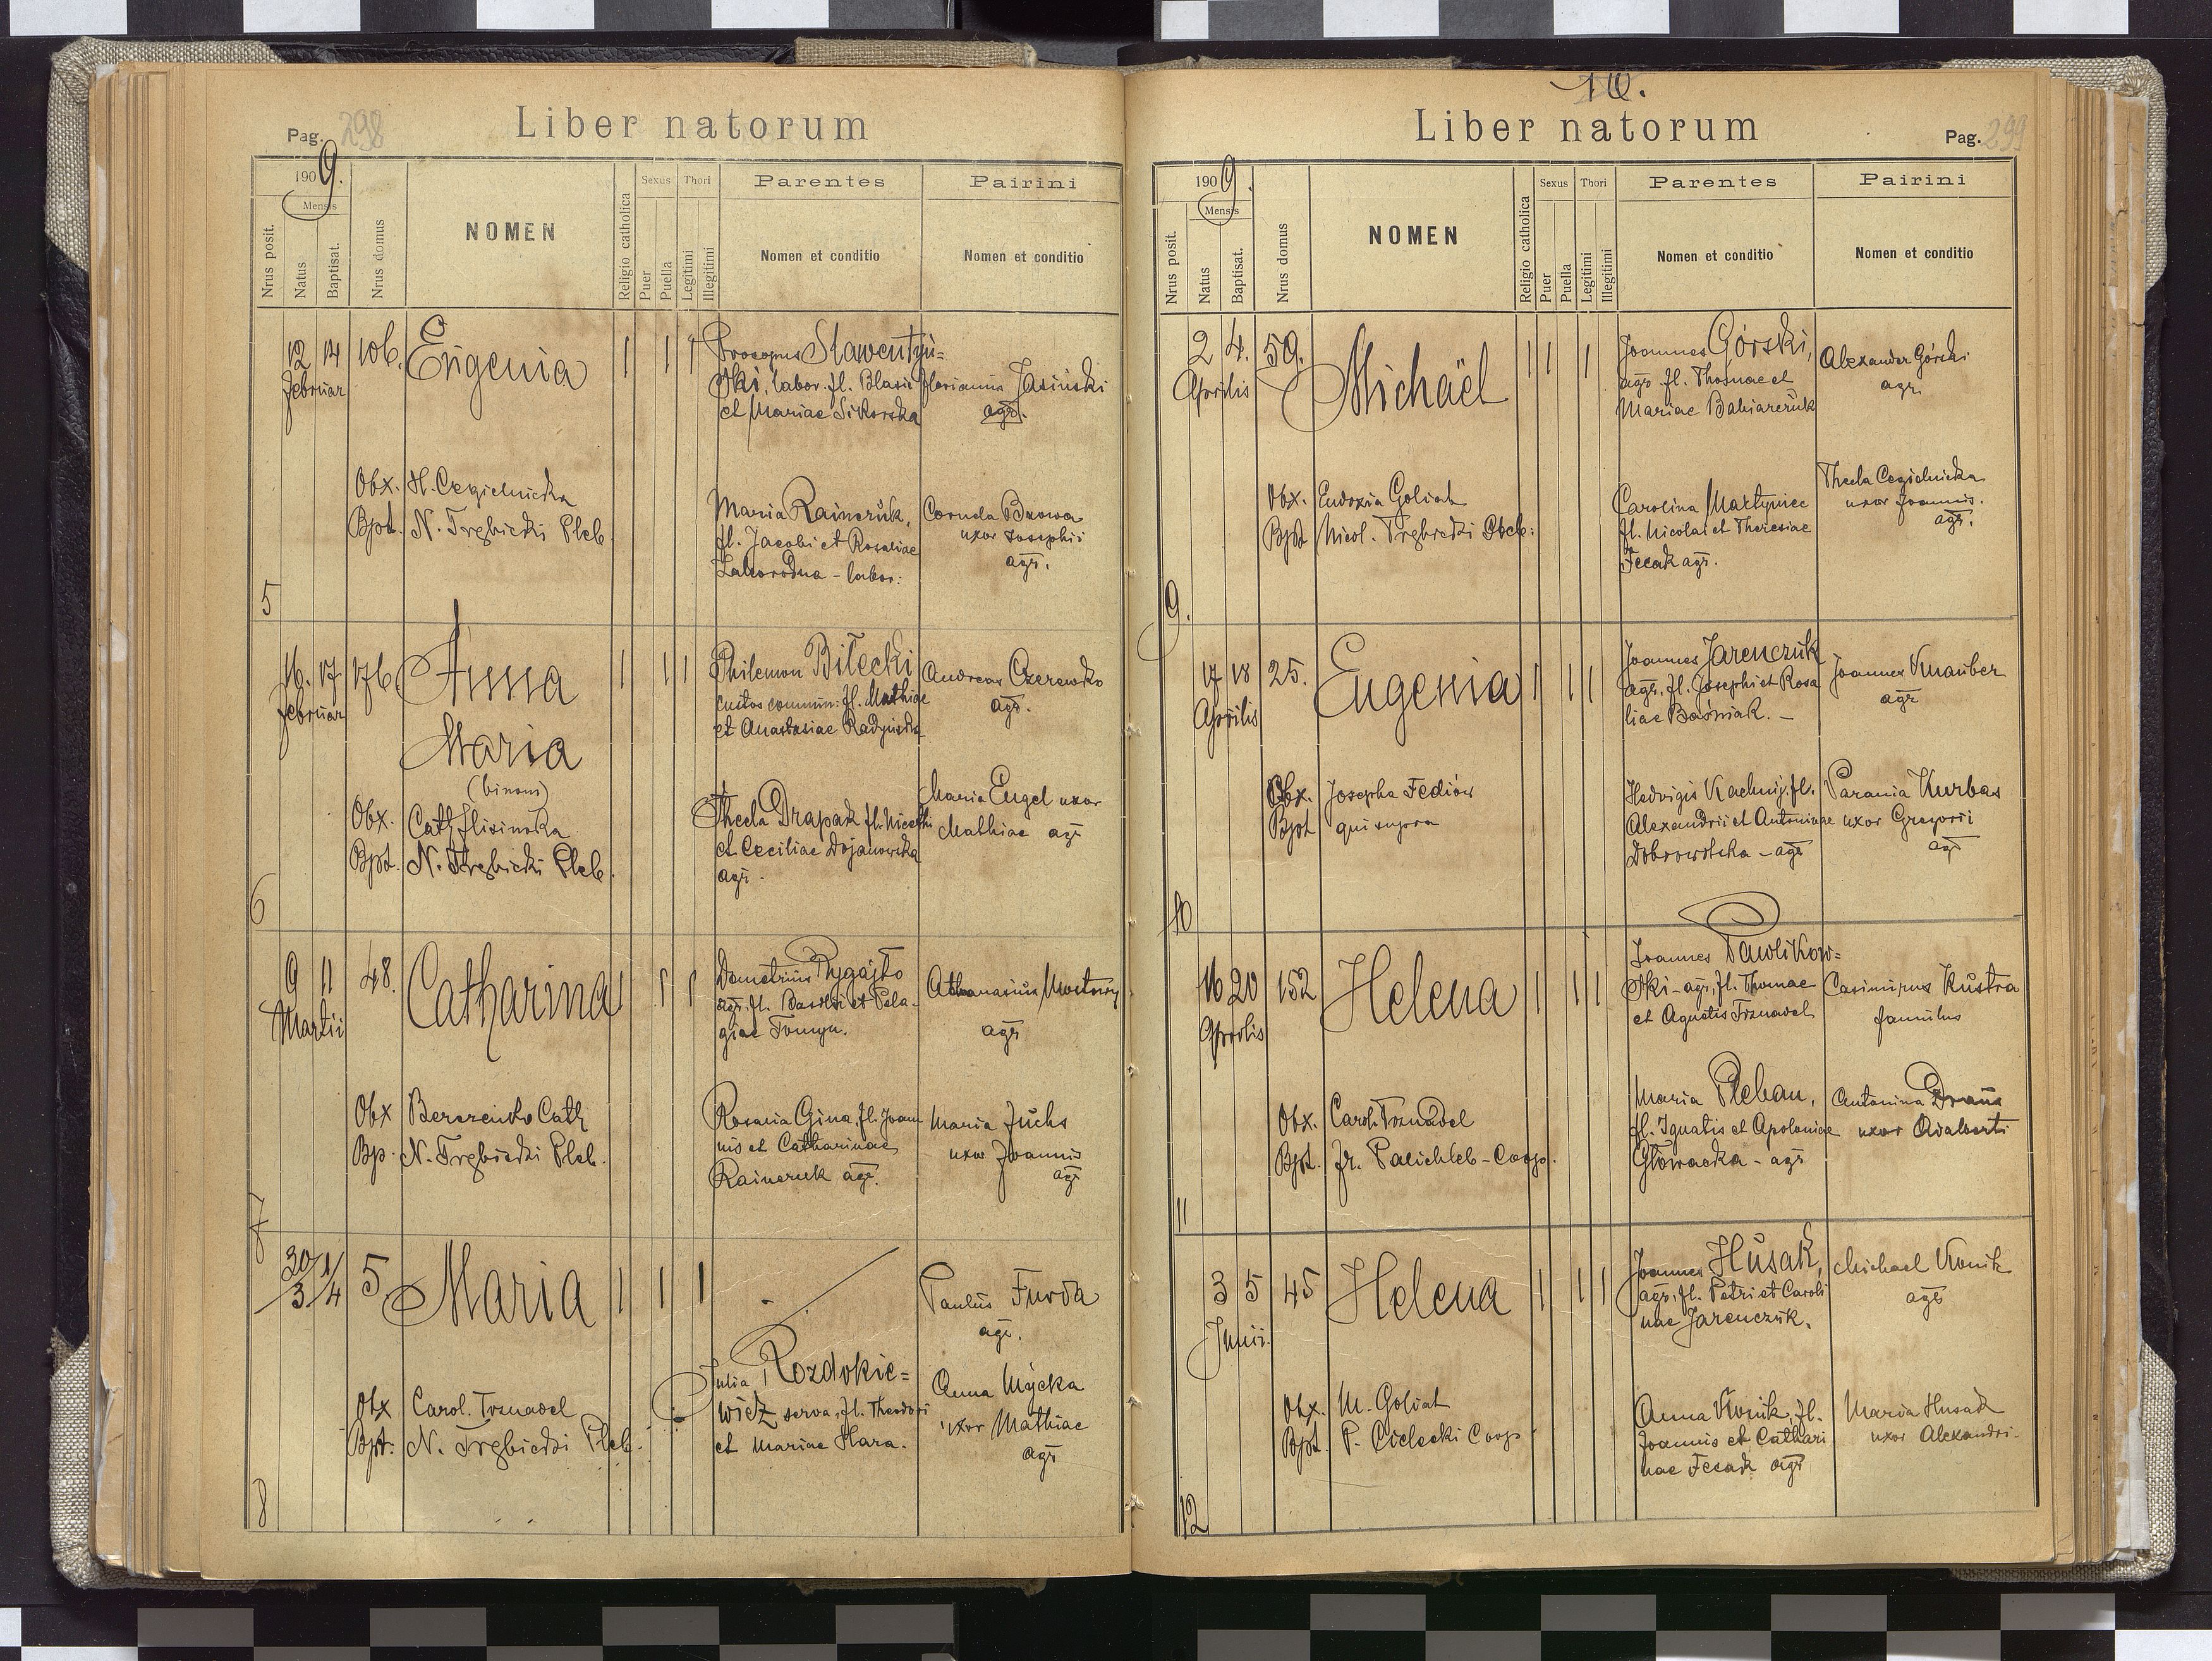 Pag. 298
Liber natorum
1909.
Mensis
Nrus posit.
Natus
Baptisat.
Nrus domus
NOMEN
Religio catholica
Sexus
Puer
Puella
Thori
Legitimi
Illegitimi
Parentes
Nomen et conditio
Pairini
Nomen et conditio
5
12 14
Februar
106.
Eugenia
1 1 1
Obx. H. Cegielnicka
Bpt. N. Trzbicki Pleb.
Procopius Slawentyn=
ski, labor. fl. Blasii
et Mariae Sikorska
Maria Rainczuk,
fl. Jacobi et Rosaliae
Zahorodna - labor:
Florianus Jasiński
agr.
Cornela Bzowa
uxor Josephi
agr.
6
16. 17
Februar
176
Anna
Maria
(binom)
1 1 1
Obx. Cath Hlisinska
Bpt. N. Trzbicki Pleb.
Philemon Bilecki
custos commun: fl. Mathiae
et Anastasiae Radyńska
Thecla Drapak fl. Nicethi
et Ceciliae Dojanowska
agr.
Andreas Czerewko
agr.
Maria Engel uxor
Mathiae agr
7
9 11
Martii
48.
Catharina
1 1 1
Obx Berezeńko Cath
Bp. N. Trzbicki Pleb.
Demetrius Pygajło
agr. fl. Basilii et Pela-
giae Tomyn.
Rosaria Gina, fl. Joan
nis et Catharinae
Rainczuk agr.
Athanasius Mostowy
agr
Maria Fuchs
uxor Joannis
agr
8
30/3 1/4
5
Maria
1 1 1
Obx Carol. Trznadel
Bpt. N. Trzbicki Pleb.
Julia Rozdokie=
wicz serva, fl. Theodori
et Mariae Hara.
Paulus Furda
agr.
Anna Mycka
uxor Mathiae
agr
10.
Liber natorum
Pag. 299
1909.
Mensis
Nrus posit.
Natus
Baptisat.
Nrus domus
NOMEN
Religio catholica
Sexus
Puer
Puella
Thori
Legitimi
Illegitimi
Parentes
Nomen et conditio
Pairini
Nomen et conditio
9.
2 4.
Aprilis
59.
Michaël
1 1 1
Obx. Eudoxia Goliat
Bpt Nicol. Trzbicki Pleb:
Joannes Górski,
agr. fl. Thomae et
Mariae Babiarczuk
Carolina Martyniec
fl. Nicolai et Theresiae
Fecak agr.
Alexander Górski
agr.
Thecla Cegielnicka
uxor Joannis.
agr.
10
17 18
Aprilis
25.
Eugenia
1 1 1
Obx. Josepha Fediów
Bpt qui supra
Joannes Jarenczuk
agr. fl. Josephi et Rosa
liae Baśniak. -
Hedvigis Kachnij. fl.
Alexandrii et Antoninae
Dobrowolska - agr
Joannes Knauber
agr
Parania Kurbas
uxor Gregorii
agr
11
16 20
Aprilis
152
Helena
1 1 1
Obx. Carol. Trznadel
Bpt. Fr. Palichleb - Coop.
Joannes Pawlikow=
ski - agr, fl. Thomae
et Agnetis Trznadel
Maria Pleban,
fl. Ignatis et Apoloniae
Głowacka - agr
Casimirus Kustra
famulus
Antonina Draus
uxor Adalberti
12
3 5
Junii.
45
Helena
1 1 1
Obx. M. Goliat
Bpt. P. Cielecki Coop
Joannes Husak,
agr. fl. Petri et Caroli
nae Jarenczuk.
Anna Kronik, fl.
Joannis et Cathari
nae Fecak agr
Michael Kronik
agr
Maria Husak
uxor Alexandri.